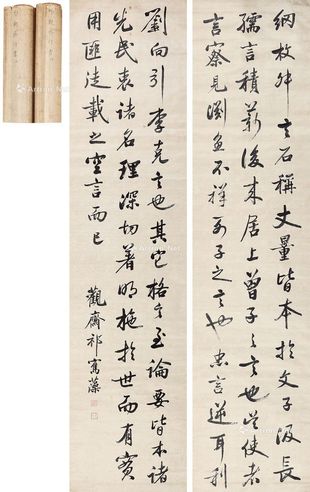 綱枚叔言石稱丈量皆本於文子汲長
孺言積薪後來居上曾子之言也使者
言察見淵魚不祥列子之言也忠言逆耳利
劉向引李克言也其它格言至論要皆本諸
先民表諸名理深切著明施於世而有實
用匪徒載之空言而已
觀齋祁寯藻